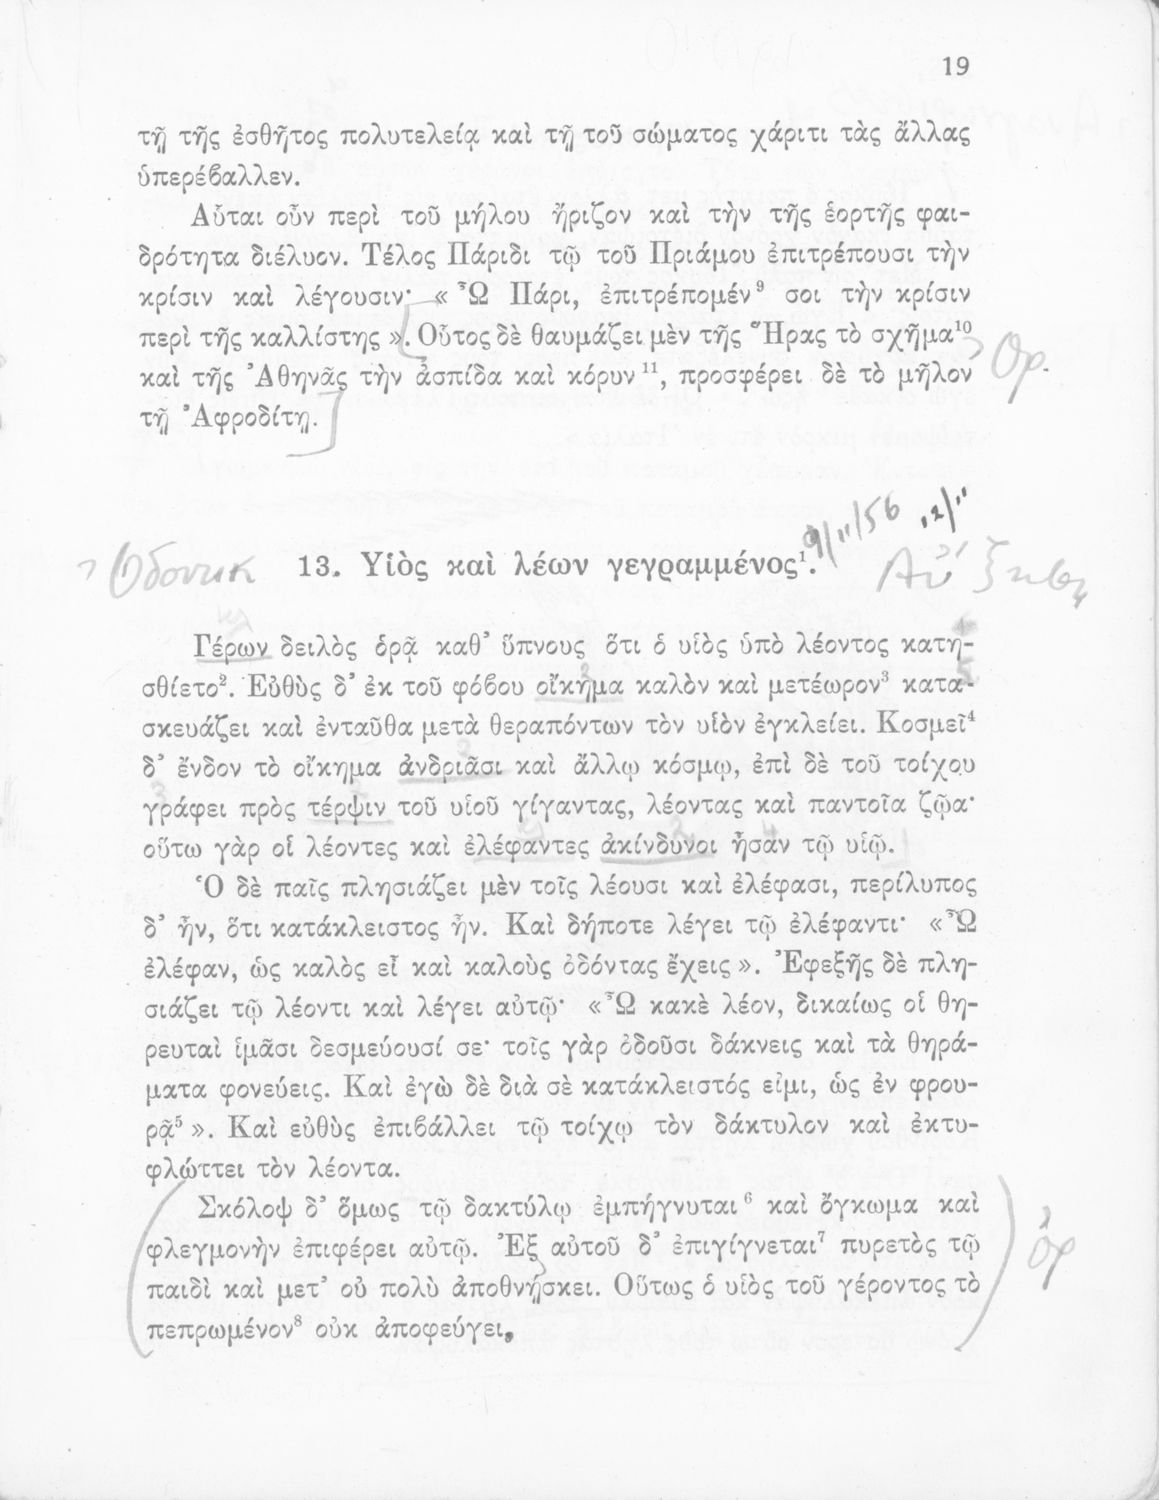 19
τῇ τῆς ἐσθῆτος πολυτελείᾳ καὶ τῇ τοῦ σώματος χάριτι τὰς ἄλλας
ὑπερέβαλλεν.
Αὗται οὖν περὶ τοῦ μήλου ἤριζον καὶ τὴν τῆς ἑορτῆς φαι-
δρότητα διέλυον. Τέλος Πάριδι τῷ τοῦ Πριάμου ἐπιτρέπουσι τὴν
κρίσιν καὶ λέγουσιν· « Ὦ Πάρι, ἐπιτρέπομέν⁹ σοι τὴν κρίσιν
περὶ τῆς καλλίστης ». Οὗτος δὲ θαυμάζει μὲν τῆς Ἥρας τὸ σχῆμα¹⁰
καὶ τῆς Ἀθηνᾶς τὴν ἀσπίδα καὶ κόρυν¹¹, προσφέρει δὲ τὸ μῆλον
τῇ Ἀφροδίτῃ.
Ορ.
9/11/56
13. Υἱὸς καὶ λέων γεγραμμένος¹.
Γέρων δειλὸς ὁρᾷ καθ’ ὕπνους ὅτι ὁ υἱὸς ὑπὸ λέοντος κατη-
σθίετο². Εὐθὺς δ’ ἐκ τοῦ φόβου οἴκημα καλὸν καὶ μετέωρον³ κατα-
σκευάζει καὶ ἐνταῦθα μετὰ θεραπόντων τὸν υἱὸν ἐγκλείει. Κοσμεῖ⁴
δ’ ἔνδον τὸ οἴκημα ἀνδριᾶσι καὶ ἄλλῳ κόσμῳ, ἐπὶ δὲ τοῦ τοίχου
γράφει πρὸς τέρψιν τοῦ υἱοῦ γίγαντας, λέοντας καὶ παντοῖα ζῷα·
οὕτω γὰρ οἱ λέοντες καὶ ἐλέφαντες ἀκίνδυνοι ἦσαν τῷ υἱῷ.
Ὁ δὲ παῖς πλησιάζει μὲν τοῖς λέουσι καὶ ἐλέφασι, περίλυπος
δ’ ἦν, ὅτι κατάκλειστος ἦν. Καὶ δήποτε λέγει τῷ ἐλέφαντι· « Ὦ
ἐλέφαν, ὡς καλὸς εἶ καὶ καλοὺς ὀδόντας ἔχεις ». Ἐφεξῆς δὲ πλη-
σιάζει τῷ λέοντι καὶ λέγει αὐτῷ· « Ὦ κακὲ λέον, δικαίως οἱ θη-
ρευταὶ ἱμᾶσι δεσμεύουσί σε· τοῖς γὰρ ὀδοῦσι δάκνεις καὶ τὰ θηρά-
ματα φονεύεις. Καὶ ἐγὼ δὲ διὰ σὲ κατάκλειστός εἰμι, ὡς ἐν φρου-
ρᾷ⁵ ». Καὶ εὐθὺς ἐπιβάλλει τῷ τοίχῳ τὸν δάκτυλον καὶ ἐκτυ-
φλώττει τὸν λέοντα.
Σκόλοψ δ’ ὅμως τῷ δακτύλῳ ἐμπήγνυται⁶ καὶ ὄγκωμα καὶ
φλεγμονὴν ἐπιφέρει αὐτῷ. Ἐξ αὐτοῦ δ’ ἐπιγίγνεται⁷ πυρετὸς τῷ
παιδὶ καὶ μετ’ οὐ πολὺ ἀποθνῄσκει. Οὕτως ὁ υἱὸς τοῦ γέροντος τὸ
πεπρωμένον⁸ οὐκ ἀποφεύγει.
ὀρ